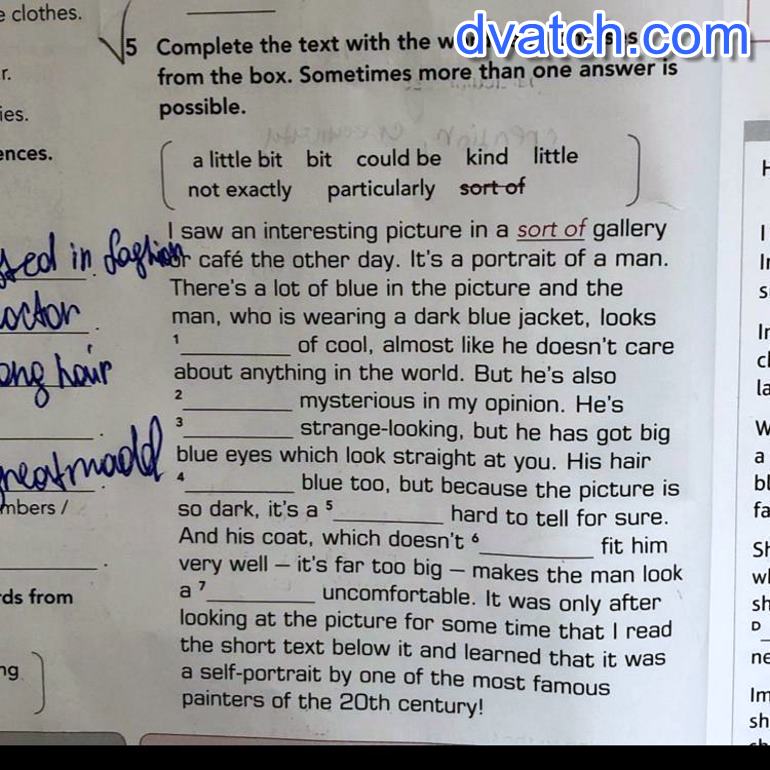 e clothes.
dvatch.com
5 Complete the text with the
from the box. Sometimes more than one answer is
possible.
r.
ies.
ences.
a little bit bit could be kind little
not exactly particularly sort of
I saw an interesting picture in a sort of gallery
or café the other day. It's a portrait of a man.
There's a lot of blue in the picture and the
man, who is wearing a dark blue jacket, looks
1 __________ of cool, almost like he doesn't care
about anything in the world. But he's also
2 __________ mysterious in my opinion. He's
3 __________ strange-looking, but he has got big
blue eyes which look straight at you. His hair
4 __________ blue too, but because the picture is
so dark, it's a 5 __________ hard to tell for sure.
And his coat, which doesn't 6 __________ fit him
very well – it's far too big – makes the man look
a 7 __________ uncomfortable. It was only after
looking at the picture for some time that I read
the short text below it and learned that it was
a self-portrait by one of the most famous
painters of the 20th century!
in fashion
octor
ong hair
mbers /
rds from
ng
H
I
In
s
In
cl
la
W
a
bl
fa
Sh
wl
sh
D
ne
Im
sh